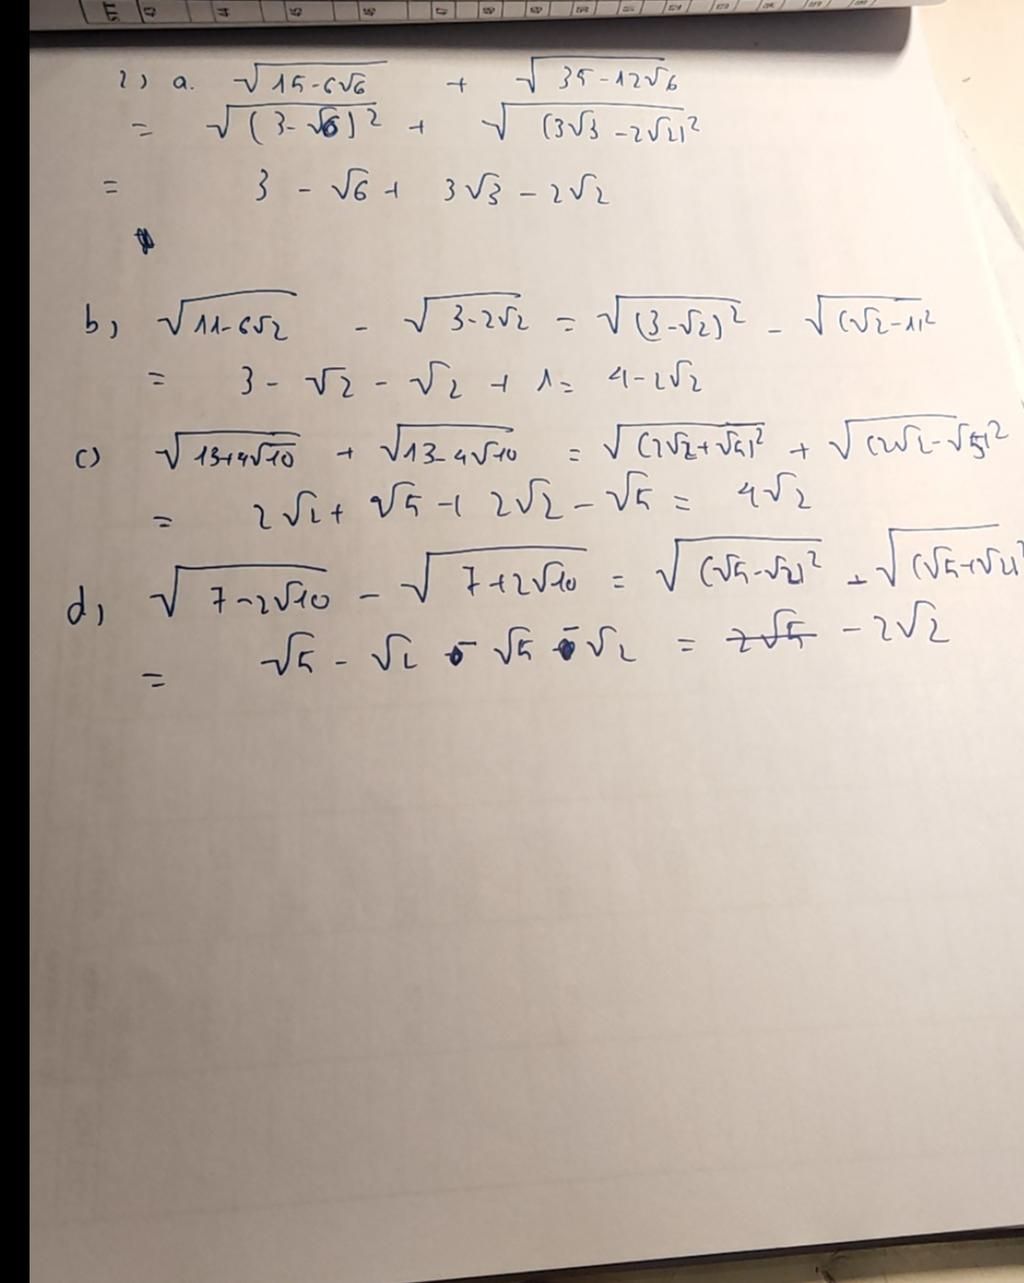 2) a. √15-6√6 + √35-12√6
= √(3-√6)² + √(3√3-2√2)²
= 3 - √6 + 3√3 - 2√2
b, √11-6√2 - √3-2√2 = √(3-√2)² - √(√2-1)²
= 3 - √2 - √2 + 1 = 4-2√2
c) √13+4√10 + √13-4√10 = √(2√2+√5)² + √(2√2-√5)²
= 2√2 + √5 + 2√2 - √5 = 4√2
d, √7-2√10 - √7+2√10 = √(√5-√2)² - √(√5+√2)²
= √5 - √2 - √5 - √2 = 2√5 - 2√2